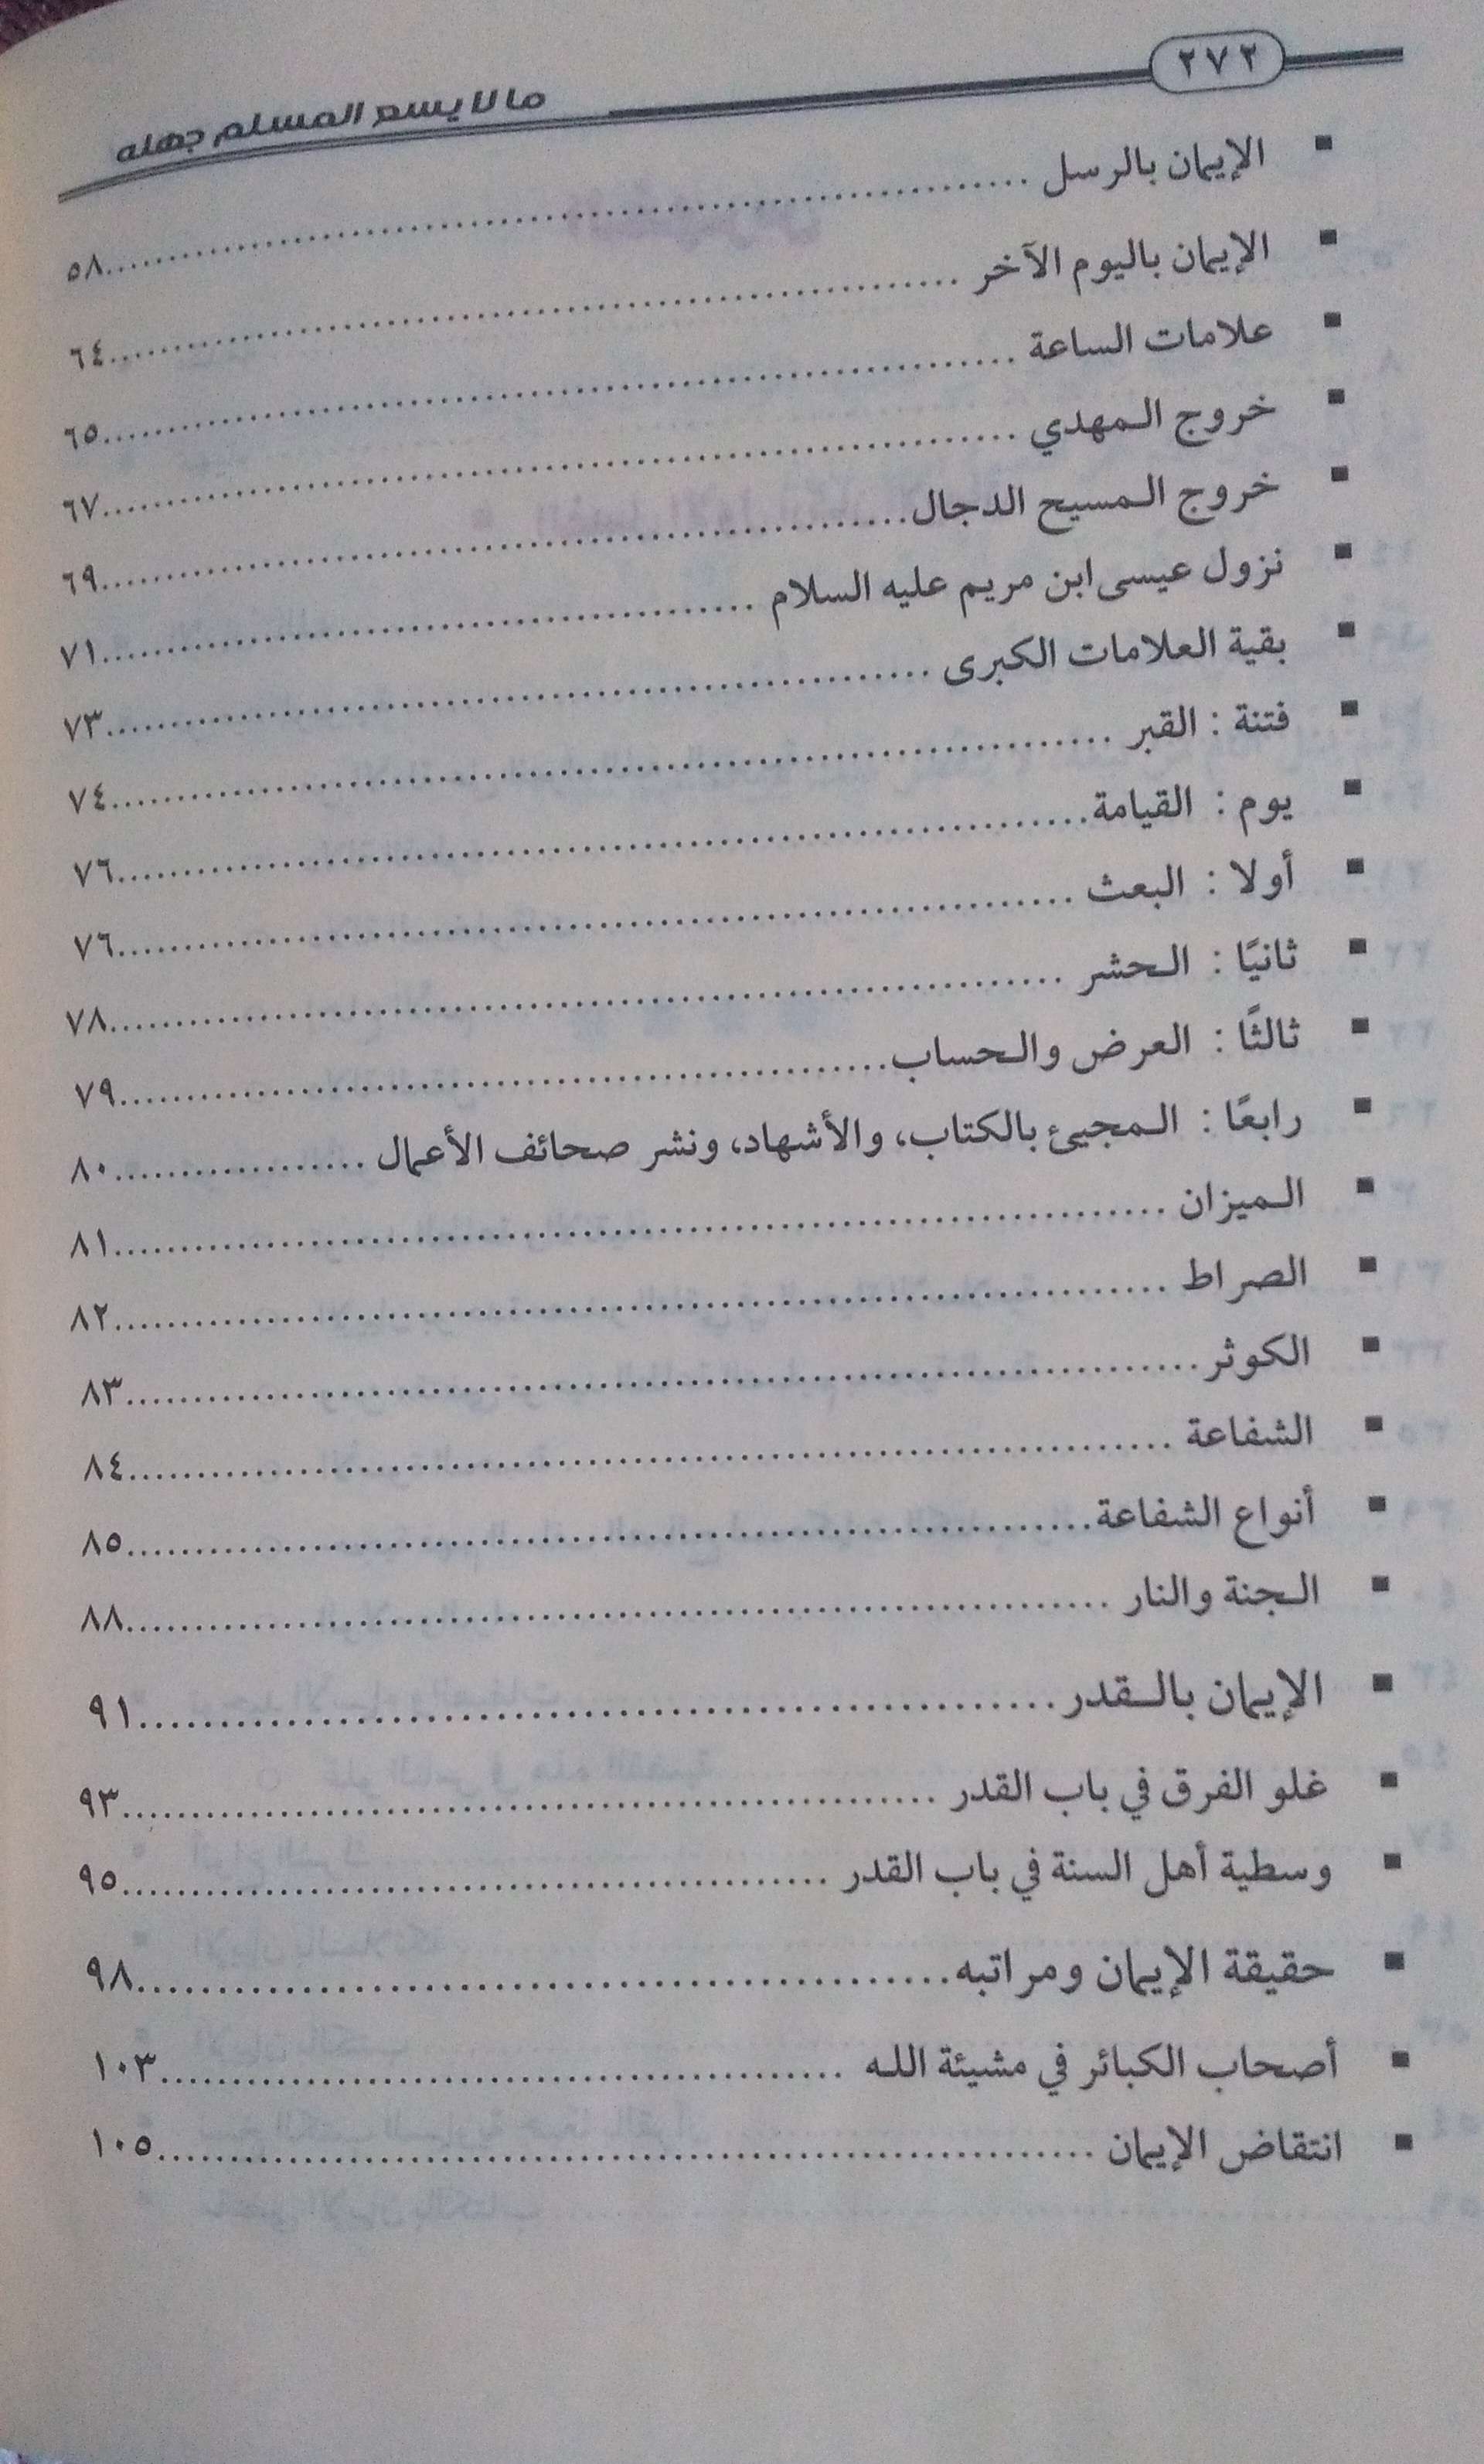 ٢٧٢
ما لا يسع المسلم جهله
▪ الإيمان بالرسل ........ ٥٨
▪ الإيمان باليوم الآخر ........ ٦٤
▪ علامات الساعة ........ ٦٥
▪ خروج المهدي ........ ٦٧
▪ خروج المسيح الدجال ........ ٦٩
▪ نزول عيسى ابن مريم عليه السلام ........ ٧١
▪ بقية العلامات الكبرى ........ ٧٣
▪ فتنة : القبر ........ ٧٤
▪ يوم : القيامة ........ ٧٦
▪ أولا : البعث ........ ٧٦
▪ ثانيًا : الحشر ........ ٧٨
▪ ثالثًا : العرض والحساب ........ ٧٩
▪ رابعًا : المجيئ بالكتاب، والأشهاد، ونشر صحائف الأعمال ........ ٨٠
▪ الميزان ........ ٨١
▪ الصراط ........ ٨٢
▪ الكوثر ........ ٨٣
▪ الشفاعة ........ ٨٤
▪ أنواع الشفاعة ........ ٨٥
▪ الجنة والنار ........ ٨٨
▪ الإيمان بالقدر ........ ٩١
▪ غلو الفرق في باب القدر ........ ٩٣
▪ وسطية أهل السنة في باب القدر ........ ٩٥
▪ حقيقة الإيمان ومراتبه ........ ٩٨
▪ أصحاب الكبائر في مشيئة الله ........ ١٠٣
▪ انتقاض الإيمان ........ ١٠٥